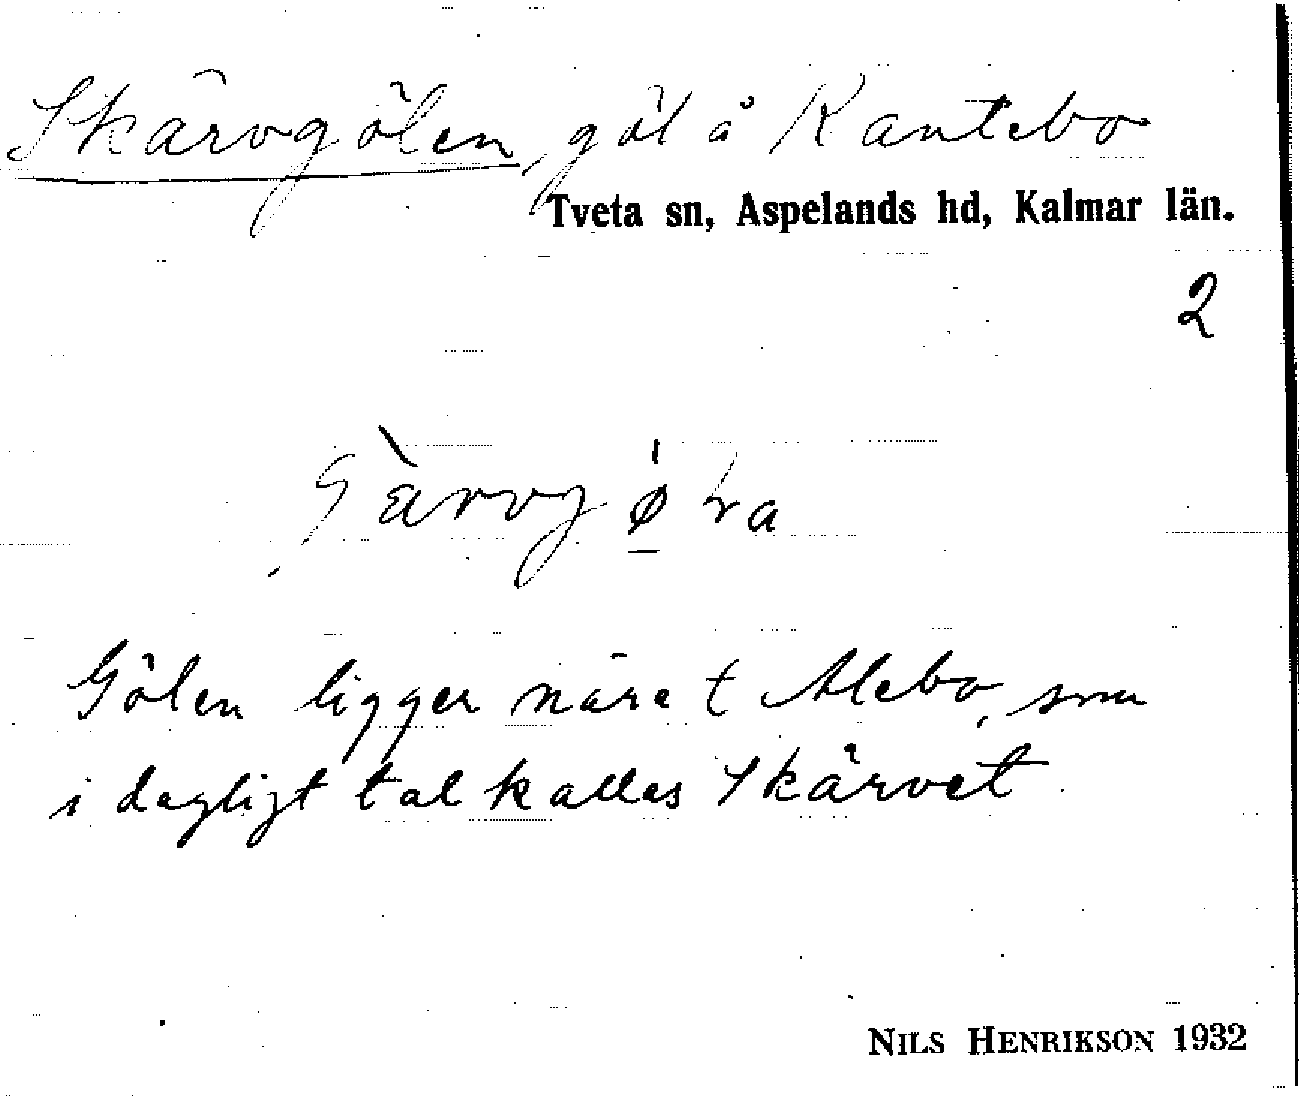 Skärvgölen, göl å Kantebo
Tveta sn, Aspelands hd, Kalmar län.
2
Gölen ligger näre t Alebo, som
i dagligt tal kallas Skärvet
NILS HENRIKSON 1932